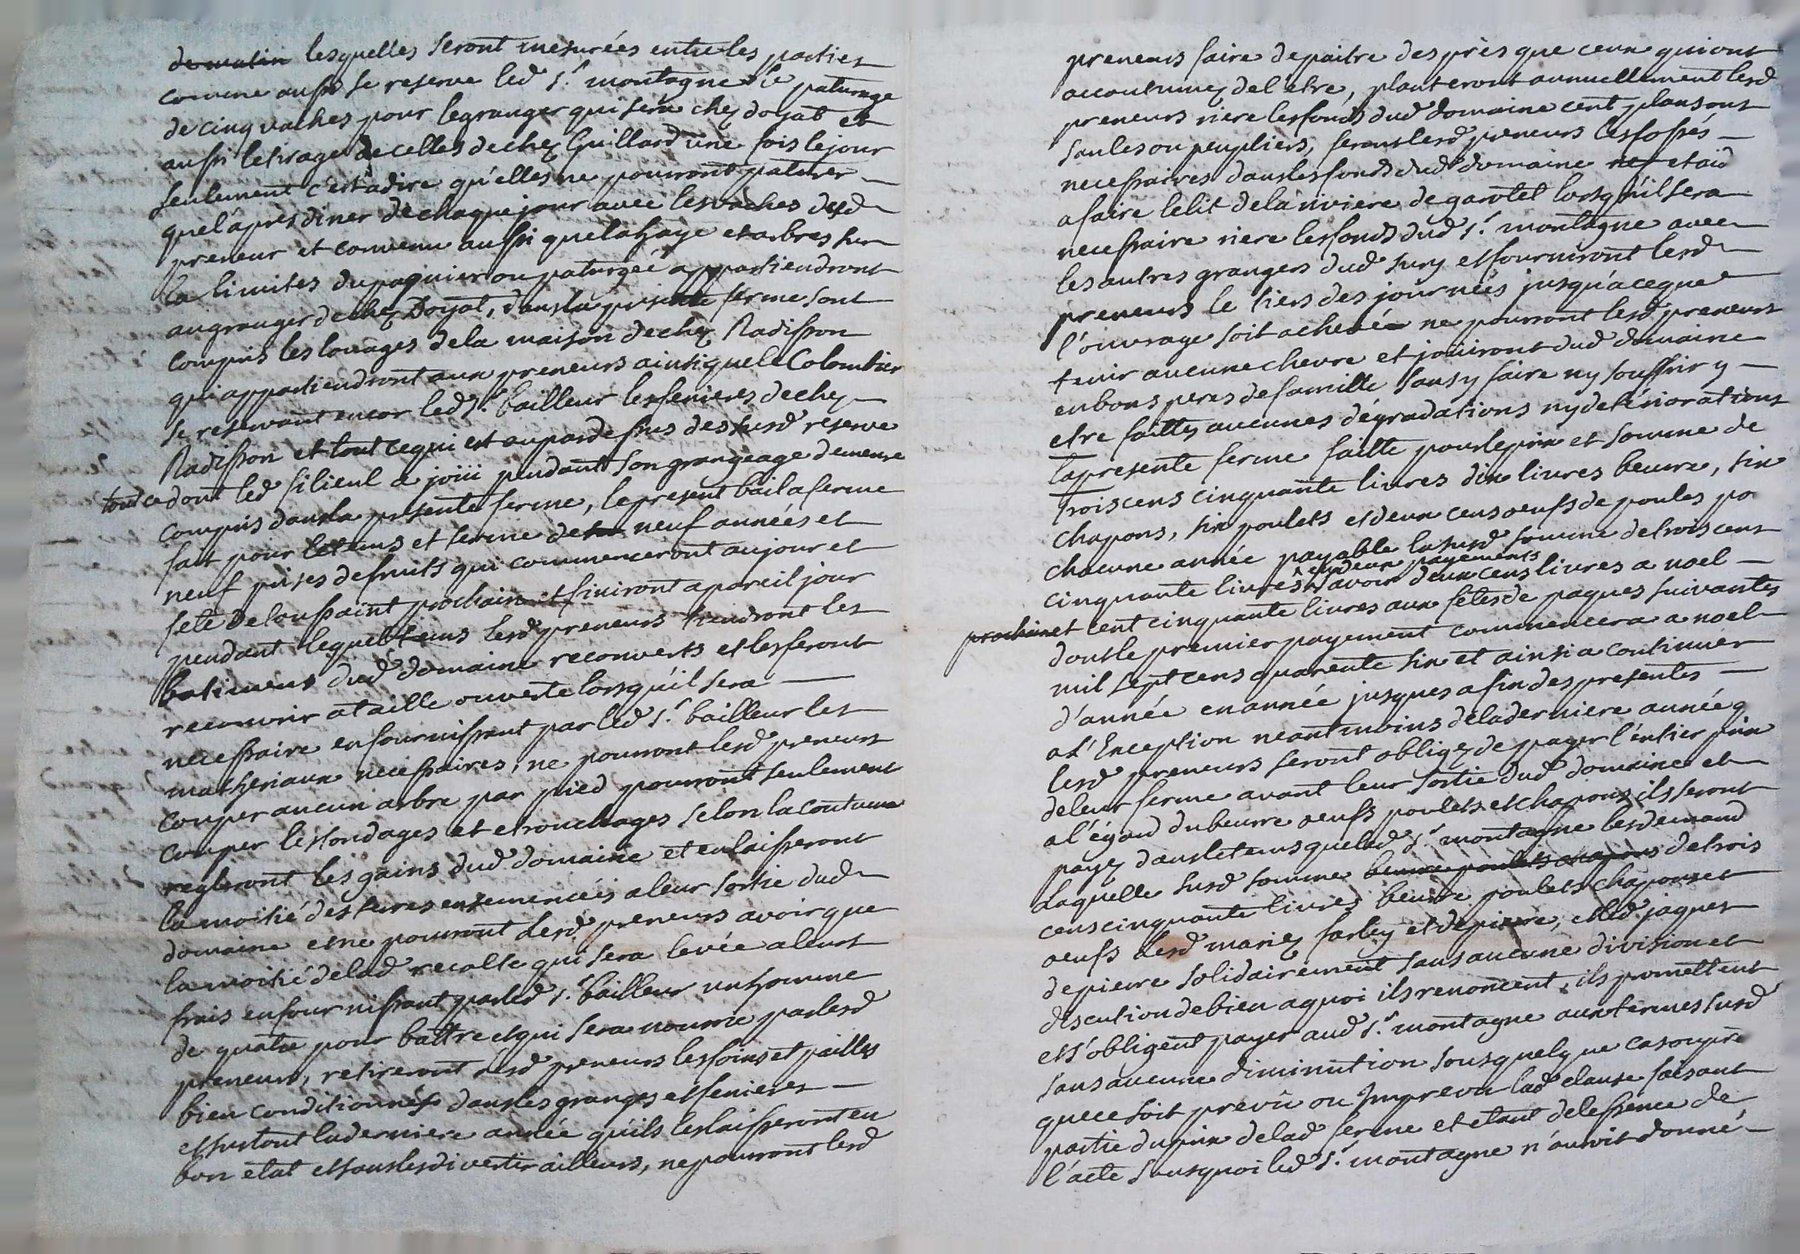 de matin lesquelles seront mesurées entre les parties
comme aussi se reserve led s.r montagne le paturage
de cinq vaches pour le granger qui sera chez doyat et
aussi le tirage de celles de chez Guillard une fois le jour
seulement c'est adire qu'elles ne pourront paturer
quel'apres diner de chaque jour avec les vaches dud
preneur et convenu aussi que la haye et arbres sur
la limites du paquier ou paturgée appartiendront
au granger de chez Doyat, dans la presente ferme sont
compris les louages de la maison de chez Radisson
qui appartiendront aux preneurs ainsi que le Colombier
se reservant encor led s.r bailleur les fenieres de chez
Radisson et tout ce qui est au pardessus des susd reserve
tout ce dont led filieul a joüi pendant son grangeage demeure
compris dans la presente ferme, le present bail a ferme
fait pour le tems et terme de neuf années et
neuf prises de fruits qui commenceront au jour et
fete de toussaint prochain et finiront a pareil jour
pendant lequel tems lesd preneurs tiendront les
batimens dud domaine recouverts et les feront
recouvrir a taille ouverte lorsqu'il sera
necessaire en fournissant par led s.r bailleur les
matheriaux necessaires, ne pourront lesd preneurs
couper aucun arbre par pied pourront seulement
couper les tondages et etrouchages selon la coutume
regleront les gains dud domaine et en laisseront
la moitié des terres ensemencéés a leur sortie dud
domaine et ne pourront lesd preneurs avoir que
la moitié de lad recolte qui sera levée a leurs
frais en fournissant par led s.r bailleur un homme
de quatre pour battre et qui sera nourrie par lesd
preneurs, retireront lesd preneurs les foins et pailles
bien conditionnés dans les granges et fenieres
et surtout la derniere année qu'ils les laisseront en
bon état et sans les divertir ailleurs, ne pourront lesd
preneurs faire depaitre des près que ceux qui ont
accoutumez del etre, planteront annuellement lesd
preneurs riere les fonds dud domaine cent plansons
saules ou peupliers, feront lesd preneurs les fossés
necessaires dans les fonds dud domaine et aid
a faire le lit de la riviere de garollet lorsqu'il sera
necessaire riere les fonds dud s.r montagne avec
les autres grangers dud sury et fourniront lesd
preneurs le tiers des journéés jusqu'a ceque
l'ouvrage soit achevée ne pourront lesd preneurs
tenir aucune chevre et joüiront dud domaine
en bons peres de famille sans y faire ny souffrir y
etre faittes aucunes dégradations ny detériorations
la presente ferme faitte pour le prix et somme de
trois cens cinquante livres dix livres beurre, six
chapons, six poulets et deux cens oeufs de poules po
chacune année payable la susd somme de trois cens
en deux payements
cinquante livres savoir deux cens livres a noel
prochain et cent cinquante livres aux fêtes de paques suivantes
dont le premier payement commencera a noel
mil sept cens quarente six et ainsi a continuer
d'année en année jusques a fin des presentes
a L'Exception néantmoins de la derniere année q
lesd preneurs seront obligez de payer l'entier prix
de leur ferme avant leur sortie dud domaine et
a l'égard du beurre oeufs poulets et chapons ils seront
payez dans le tems que led s.r montagne les demand
Laquelle susd somme beurre poulets chapons de trois
cens cinquante livres beurre poulets chapons et
oeufs lesd mariez farley et depierre, et led jaques
depierre solidairement sans aucune division et
discution de bien a quoi ils renoncent, ils promettent
et s'obligent payer aud s.r montagne aux termes susd
sans aucune diminution sous quelque cas onpré
que ce soit prevû ou Imprevû lad clause faisant
partie du prix de lad ferme et etant de l'essence de
l'acte sans quoi led s.r montagne n'auroit donné